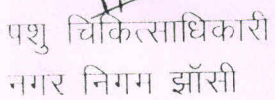 पशु चिकित्साधिकारी
नगर निगम झॉसी